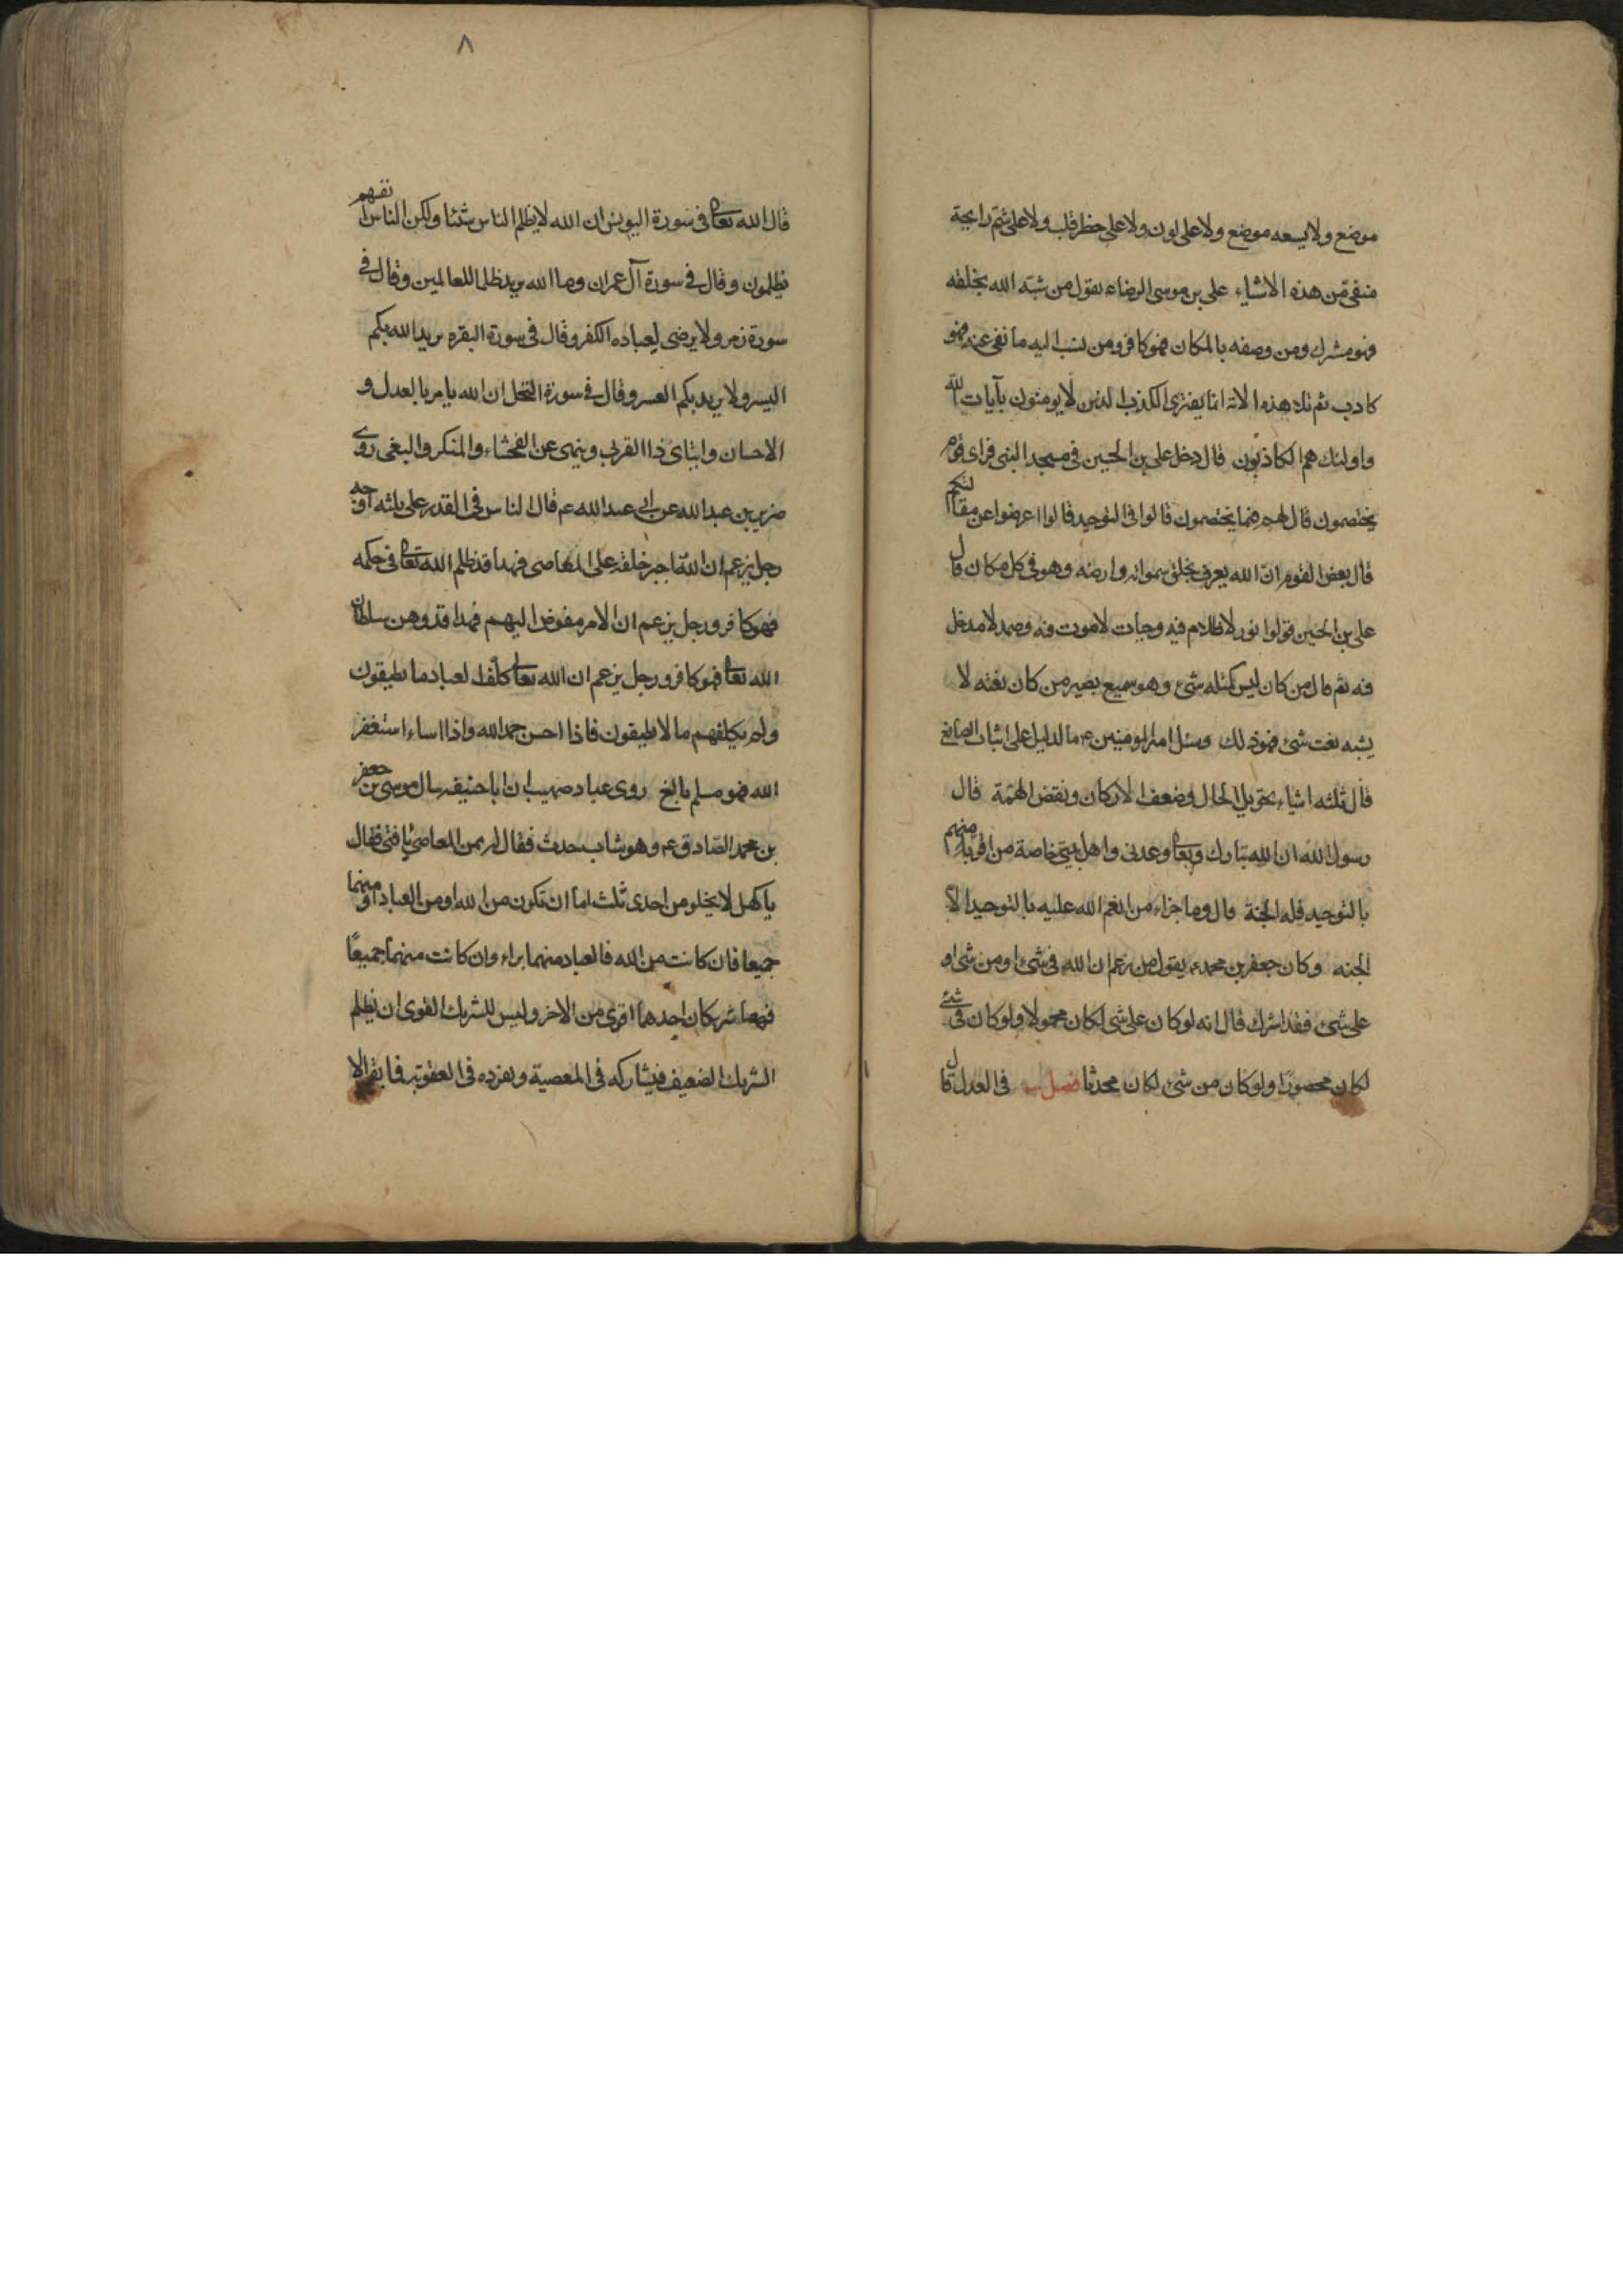 موضع ولا يسعه موضع ولا على لون ولا على خطر قلب ولا على شم رايحة
منفى من هذه الاشياء على بن موسى الرضاء يقول من شبّه الله بخلقه
فهو مشرك ومن وصفه بالمكان فهو كافر ومن نسب اليه ما نفى عنه فهو
كاذب ثم تلا هذه الاية انما يفترى الكذب الذين لا يومنون بآيات الله
واولئك هم الكاذبون قال دخل على بن الحسين فى مسجد النبى فراى قوم
يختصمون قال لهم فيما يختصمون قالوا فى التوحيد قالوا اعرضوا عن مقالتكم
قال بعض القوم انّ الله يعرف بخلق سمواته وارضه وهو فى كل مكان قال
على بن الحسين قولوا نور لا ظلام فيه وحيات لا موت فيه وصمد لا مدخل
فيه ثم قال من كان ليس كمثله شئ وهو سميع بصير من كان نعته لا
يشبه نعت شئ فهو ذلك وسئل امير المومنين ع ما الدليل على اثبات الصانع
قال ثلثه اشياء تحويل الحال وضعف الاركان ونقض الهمّة قال
رسول الله ان الله تبارك وتعالى وعدنى واهل بيتى خاصة من اقر منهم
بالتوحيد فله الجنة قال وما جزاء من انعم الله عليه بالتوحيد الا
الجنه وكان جعفر بن محمد ع يقول من زعم ان الله فى شئ او من شئ او
على شئ فقد اشرك قال انه لو كان على شئ لكان محمولا ولو كان فى شئ
لكان محصورًا ولو كان من شئ لكان محدثا فصل فى العدل قال
٨
قال الله تعالى فى سورة اليونس ان الله لا يظلم الناس شئيا ولكن الناس انفسهم
يظلمون وقال فى سورة آل عمران وما الله يريد ظلما للعالمين وقال فى
سورة زمر ولا يرضى لعباده الكفر وقال فى سورة البقره يريد الله بكم
اليسر ولا يريد بكم العسر وقال فى سورة النحل ان الله يامر بالعدل و
الاحسان وايتاى ذا القربى وينهى عن الفحشاء والمنكر والبغى روى
بن عبدالله عن ابى عبد الله ع قال الناس فى القدر على ثلثه اوجه
رجل يزعم ان الله اجبر خلقه على المعاصى فهذا قد ظلم الله تعالى فى حكمه
فهو كافر ورجل يزعم ان الامر مفوض اليهم فهذا قد وهن سلطان
الله تعالى فهو كافر ورجل يزعم ان الله تعالى كلّف العباد ما يطيقون
ولم يكلفهم ما لا يطيقون فاذا احسن حمد الله واذا اساء استغفر
الله فهو مسلم بالغ روى عباد صهيب ان ابا حنيفه سال موسى بن جعفر
بن محمد الصّادق ع وهو شاب حدث فقال له ممن المعاصى يا فتى فقال
يا كهل لا يخلو من احدى ثلث اما ان تكون من الله او من العباد او منهما
جميعا فان كانت من الله فالعباد منهما براء وان كانت منهما جميعًا
فهما شريكان احدهما اقوى من الاخر وليس للشريك القوى ان يظلم
الشريك الضعيف فيشاركه فى المعصية ويفرده فى العقوبة